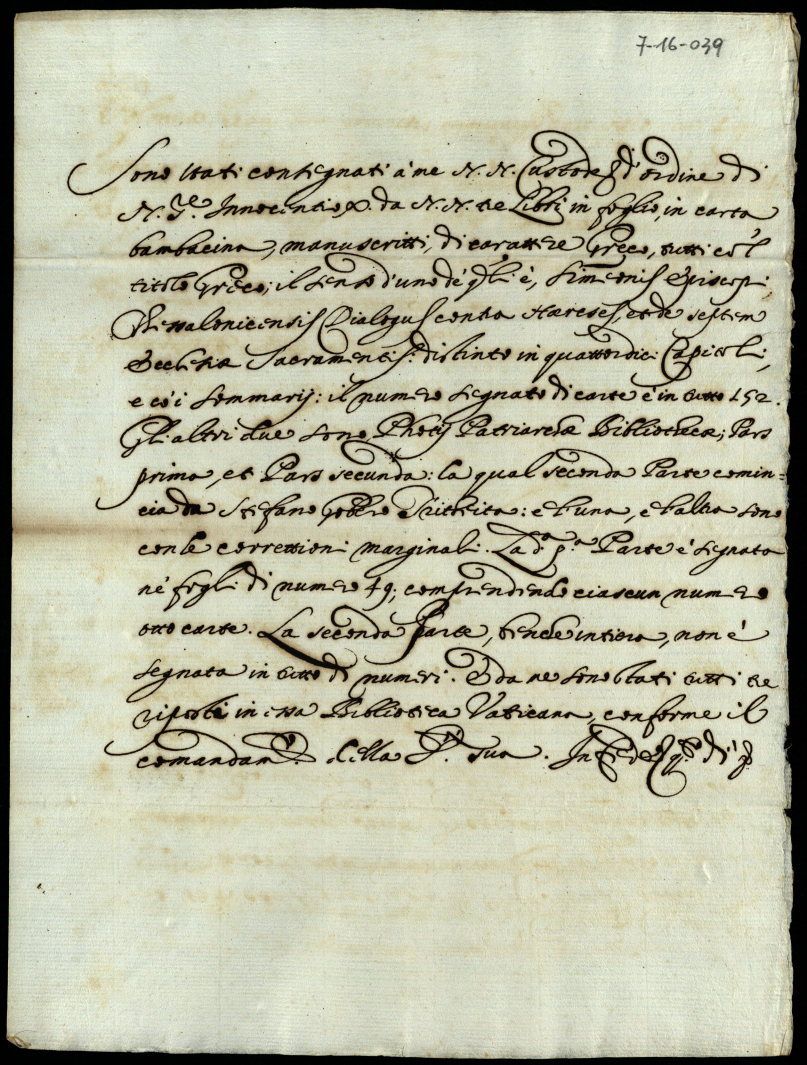 7-16-039
Sono stati consegnati à me N. N. Custode d'ordine di
N. S.re Innocentio X. da N. N. tre Libri in foglio, in carta
bambacina, manuscritti, di carattere Greco, tutti co'l
titolo Greco; il senso d'uno de' q.li è, Simeonis Episcopi
Thessalonicensis Dialogus contra Haereses, et de septem
Ecclesiae Sacramentis: distinto in quattordici Capitoli,
e co' i sommarij: il numero segnato di carte è in tutto 152.
Gli altri due sono Photij Patriarchae Bibliothecae; Pars
prima, et Pars secunda: la qual seconda Parte comin=
cia da Stefano Gobbro Tritheita: e l'una, e l'altra sono
con le correttioni marginali. La d.a p.a Parte è segnata
ne' fogli di numero 49; comprendendo ciascun numero
otto carte. La seconda Parte, benche intiera, non è
segnata in tutto di numeri. E da me sono stati tutti tre
riposti in essa Biblioteca Vaticana, conforme il
comandam.to della S.tà sua. In fede q.to dì